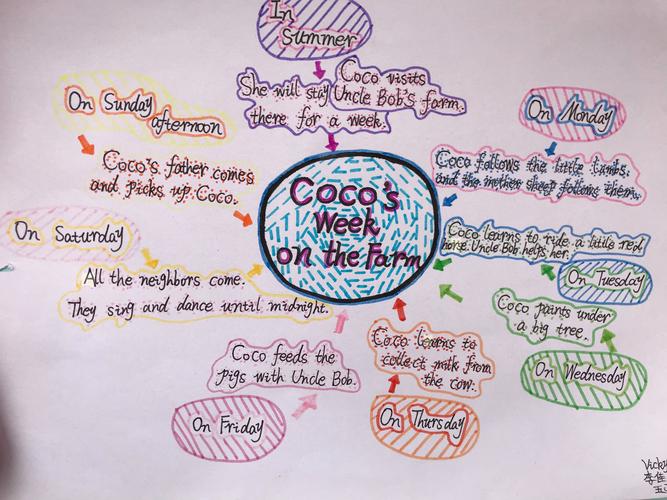 In
Summer
Coco visits
Uncle Bob's farm.
She will stay
there for a week.
On Monday
Coco follows the little lambs
and the mother sheep follows them.
Coco learns to ride a little red
horse. Uncle Bob helps her.
On Tuesday
Coco paints under
a big tree.
On Wednesday
Coco learns to
collect milk from
the cow.
On Thursday
Coco feeds the
pigs with Uncle Bob.
On Friday
On Saturday
All the neighbors come.
They sing and dance until midnight.
On Sunday
afternoon
Coco's father comes
and picks up Coco.
Coco's
Week
on the Farm
Vicky